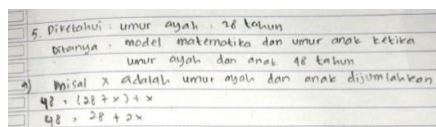 5. Diketahui : umur ayah : 28 tahun
Ditanya : model matematika dan umur anak ketika
umur ayah dan anak 48 tahun
a) misal x adalah umur ayah dan anak dijumlahkan
48 = (28 + x) + x
48 = 28 + 2x